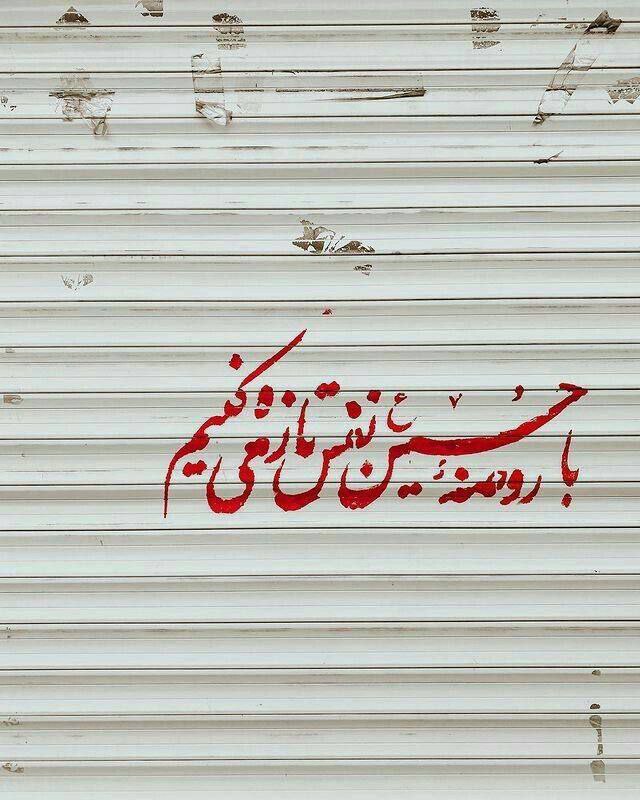 با روضهٔ حُسین نفس تازه می کنیم